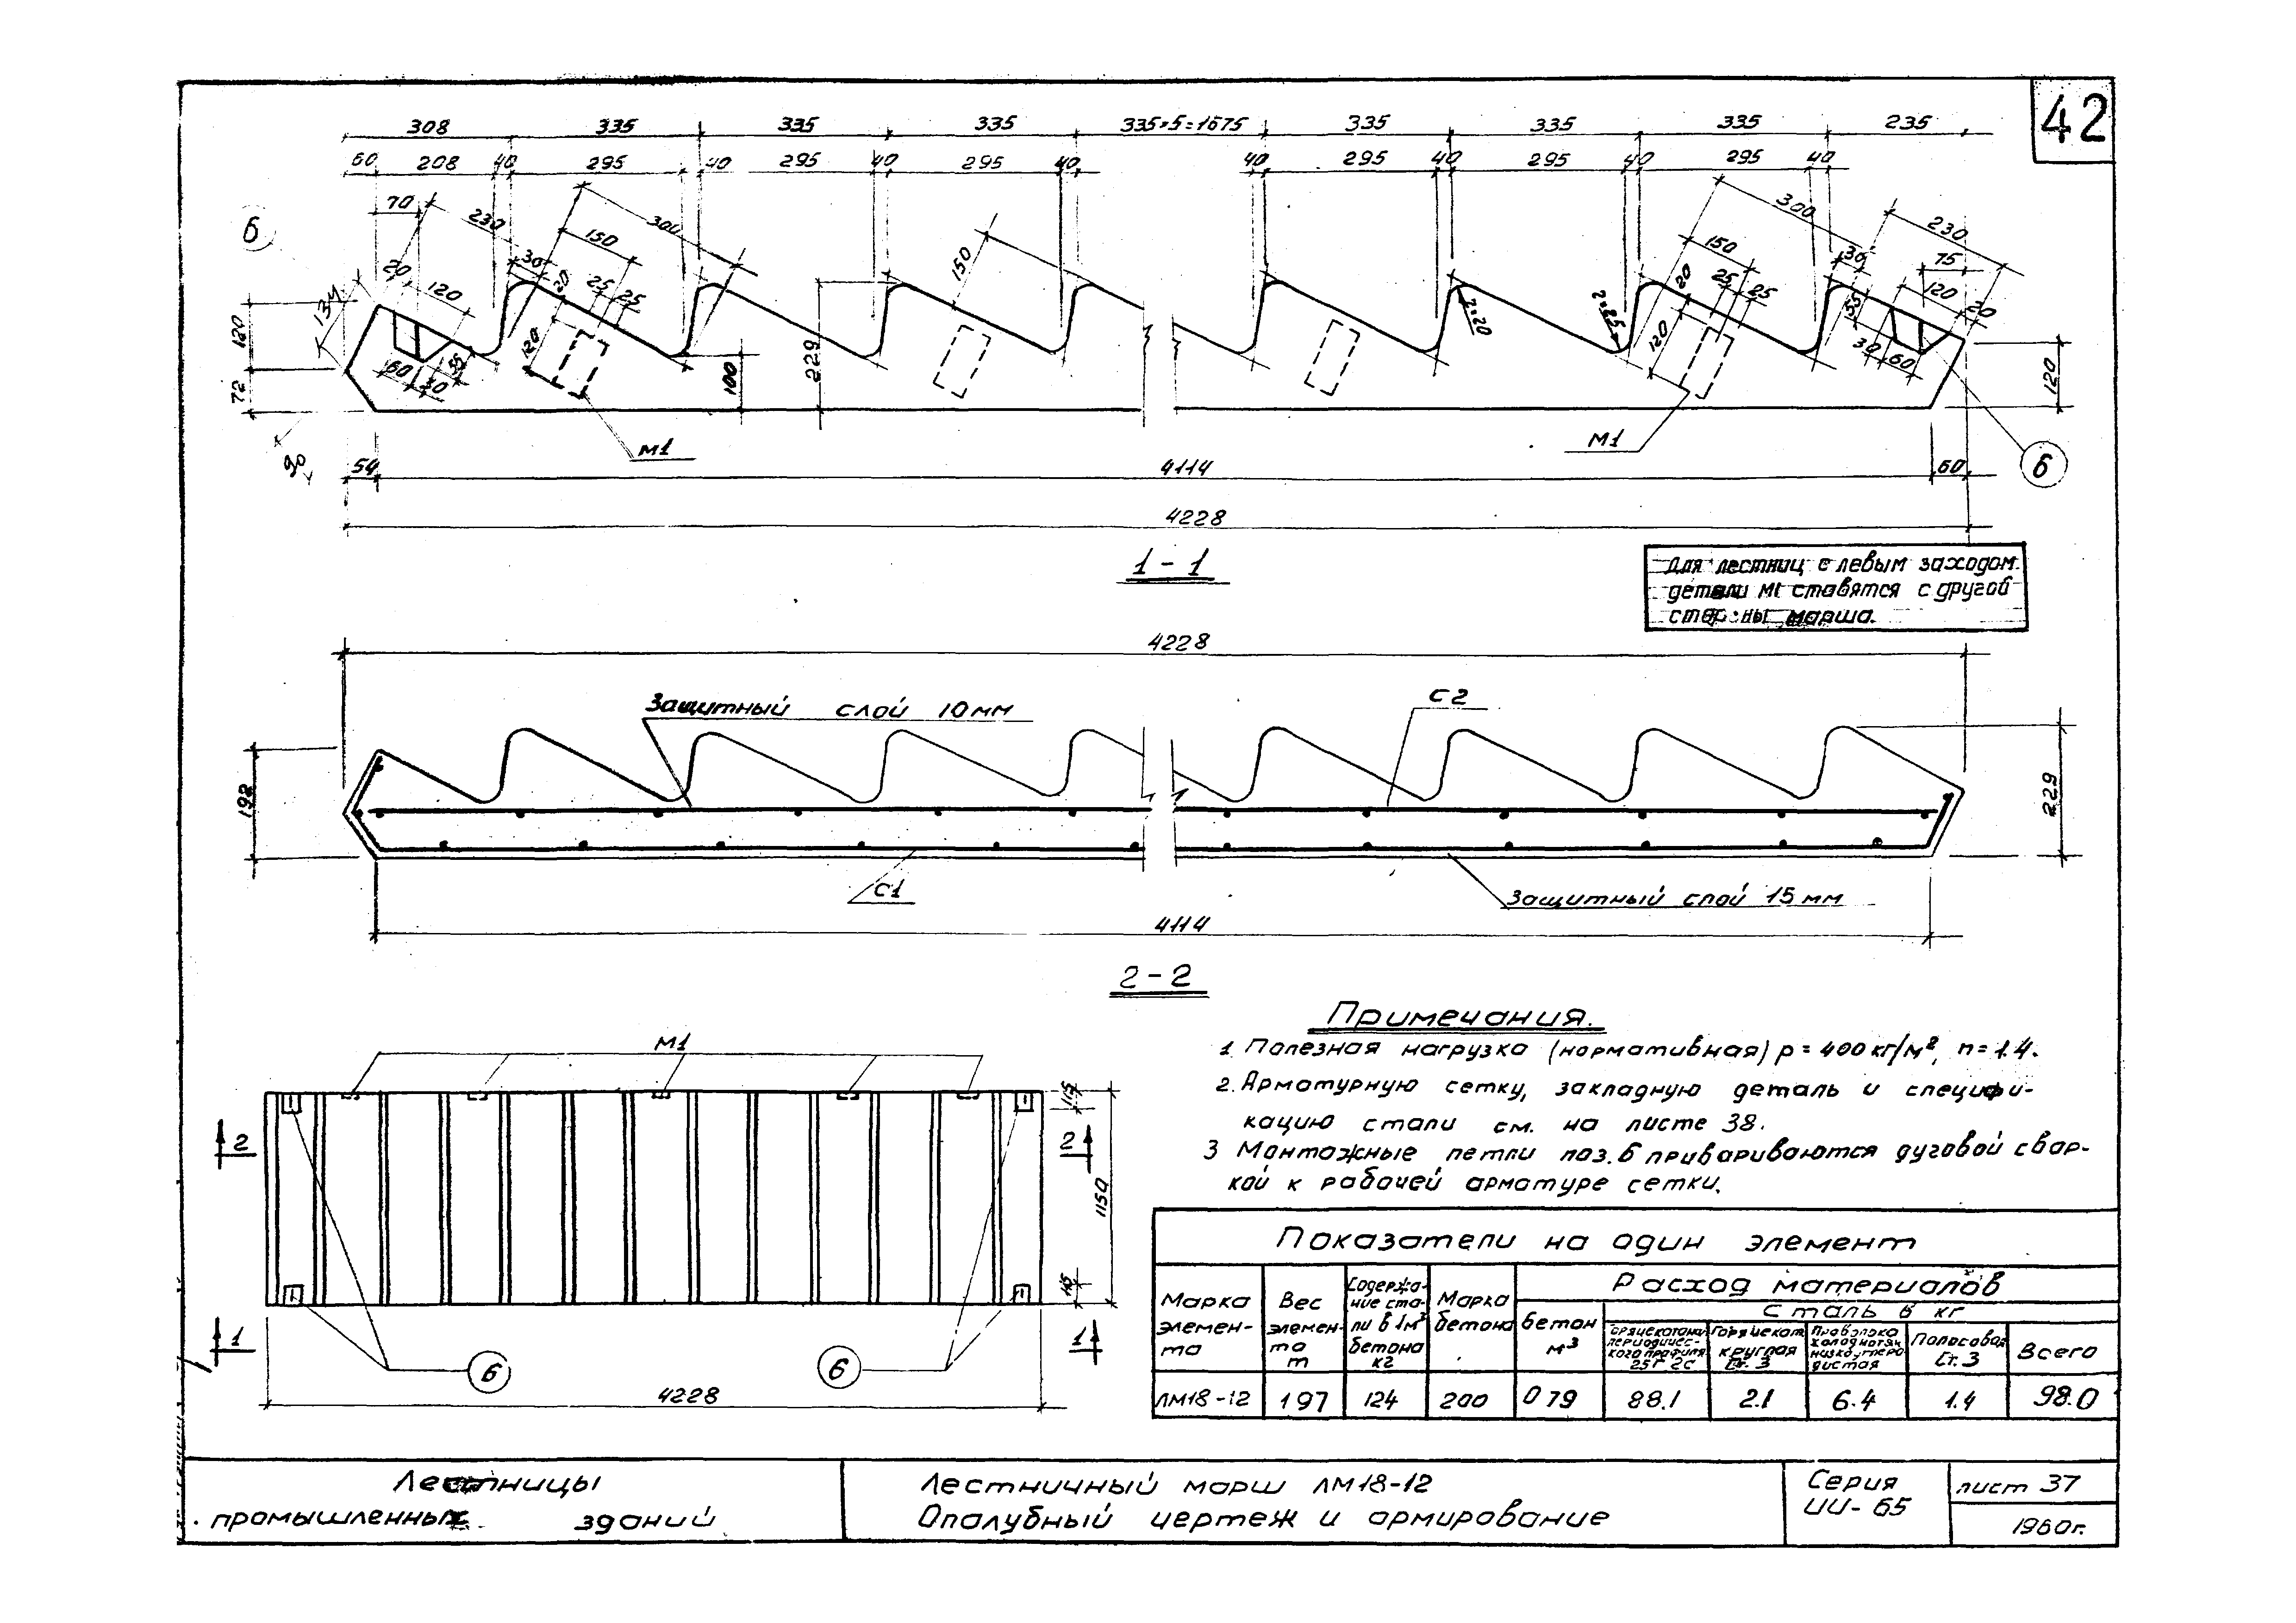 42
308 335 335 335 335×5=1675 335 335 335 235
60 208 40 295 40 295 40 295 40 40 295 40 295 40 295 40
70 230 150 300 150 300 150 230 75
6
134 20 120 30 20 25 25 20 25 25 30 55 120 20
120 72 60 30 55 120 100 229 r=20 r=25 120 30 60 120
90
М1 М1
54 4114 60 6
4228
1-1
Для лестниц с левым заходом
детали М1 ставятся с другой
стороны марша.
4228
Защитный слой 10мм С2
192 229
С1 Защитный слой 15мм
4114
2-2
Примечания.
1. Полезная нагрузка (нормативная) р=400кг/м², n=1.4.
2. Арматурную сетку, закладную деталь и специфи-
кацию стали см. на листе 38.
3 Монтажные петли поз.6 привариваются дуговой свар-
кой к рабочей арматуре сетки.
М1
2 2
1150
1 1
6 6
4228
Показатели на один элемент
Марка элемен-та
Вес элемен-та т
Содержа-ние ста-ли в 1м³ бетона кг
Марка бетона
Расход материалов
бетон м³
Сталь в кг
Горячекатан. периодичес-кого профиля 25Г 2С
Горячекат. круглая Ст. 3
Проволока холоднотян. низкоуглеро дистая
Полосовая Ст. 3
Всего
ЛМ18-12 1 97 124 200 0 79 88.1 2.1 6.4 1.4 98.0
Лестницы
промышленных зданий
Лестничный марш ЛМ18-12
Опалубный чертеж и армирование
Серия
ИИ-65
лист 37
1960г.